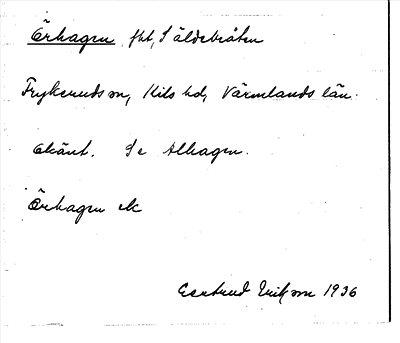 Örhagen fht, Säldebråten
Frykeruds sn, Kils hd, Värmlands län.
Okänt. Se Alhagen.
Örhagen etc
Gertrud Erikson 1936